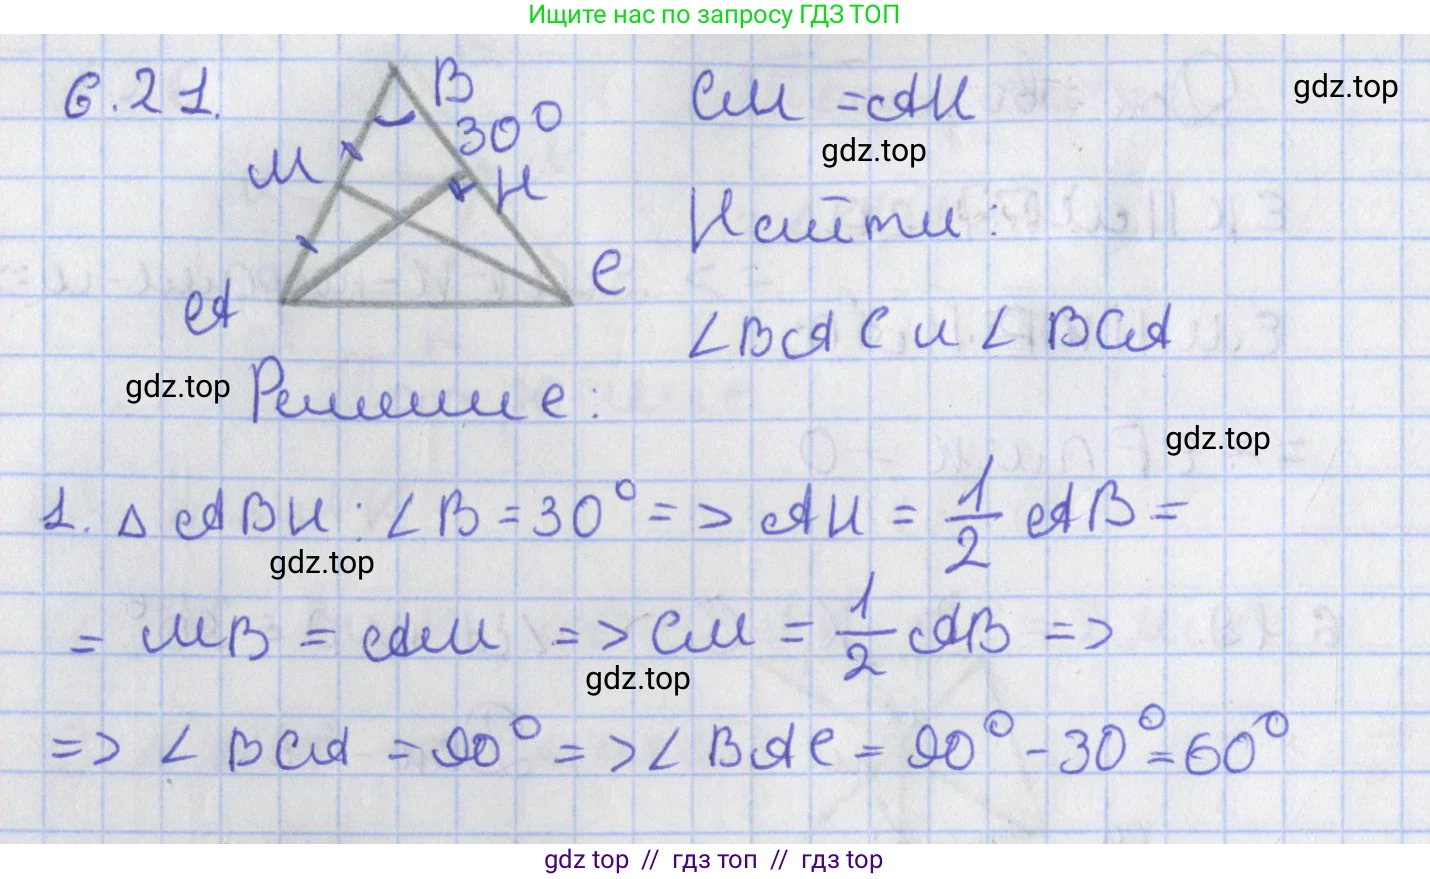 Ищите нас по запросу ГДЗ ТОП
6.21.
B
30°
CM = AH
gdz.top
gdz.top
M
H
Найти:
C
A
∠BAC и ∠BCA
gdz.top
Решение:
gdz.top
1. △ABH: ∠B = 30° => AH = 1/2 AB =
gdz.top
= MB = AM => CM = 1/2 AB =>
gdz.top
=> ∠BCA = 90° => ∠BAC = 90° - 30° = 60°
gdz top // гдз топ // gdz top